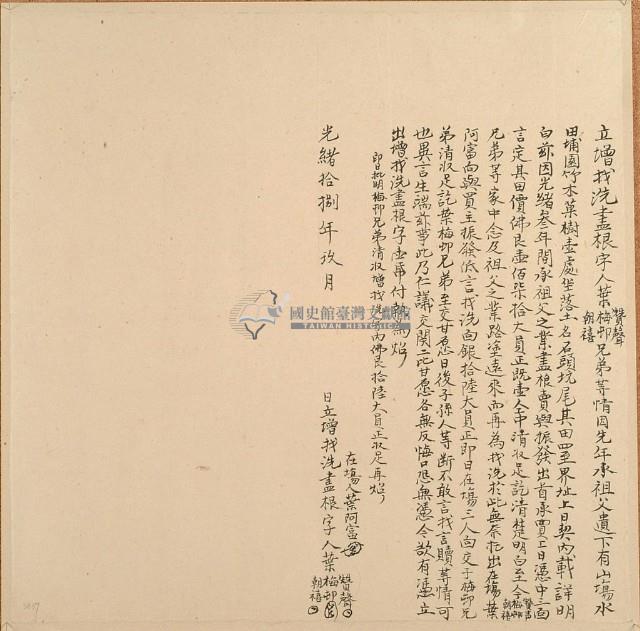 立增找洗盡根字人葉梅卯兄弟等情因先年承祖父遺下有山塲水
贊聲
朝禧
田埔園竹木菓樹壹處坐落土名石頭坑尾其田四至界址上日契內載詳明
白玆因光緒叁年間承祖父之業盡根賣與振發出首承買上日憑中三面
言定其田價佛艮壹佰柒拾大員正既壹人全中清收足訖清楚明白至今梅卯
贊聲
朝禧
兄弟等家中念及祖父之業路塗遠來而再為找洗於此無奈托出在塲葉
阿富向與買主振發低言找洗向銀拾陸大員正即日在塲三人面交于梅卯兄
弟清收足訖葉梅卯兄弟至交甘愿日後子孫人等斷不敢言找言贖等情可
也異言生端玆事此乃仁議交關二比甘愿各無反悔口恐無憑今欲有憑立
出增找洗盡根字壹帋付執為炤
即日批明梅卯兄弟清收增找洗字內佛艮拾陸大員正收足再炤
在塲人葉阿富
光緒拾捌年玖月 日立增找洗盡根字人葉梅卯
贊聲
朝禧
國史館臺灣文獻館
TAIWAN HISTORICA